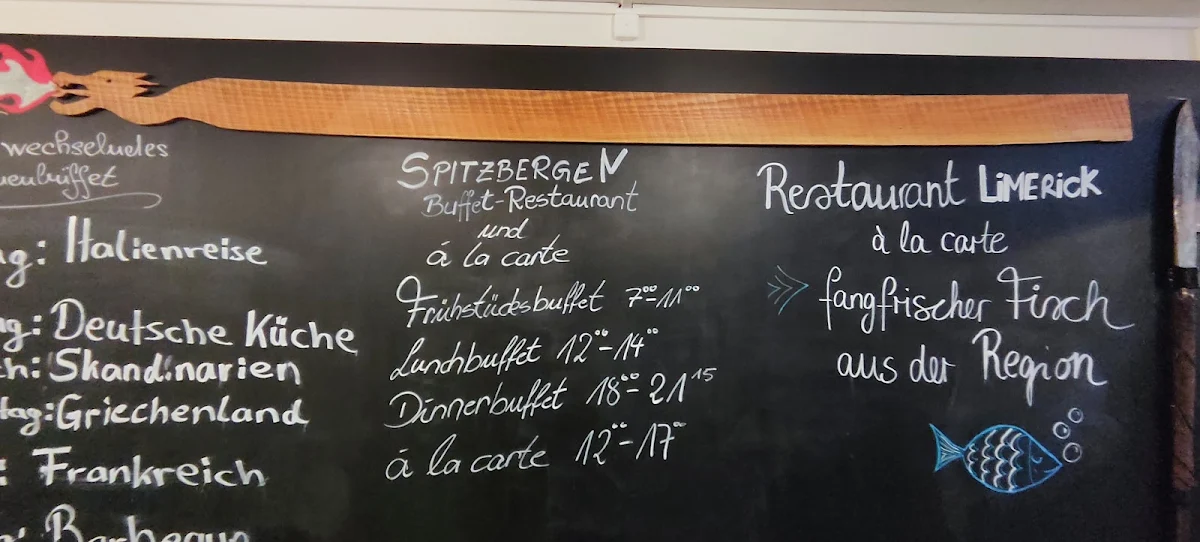 wechselndes
Italienreise
Deutsche Küche
Skandinarien
Griechenland
: Frankreich
SPITZBERGEN
Buffet-Restaurant
und
á la carte
Frühstücksbuffet 7⁰⁰-11⁰⁰
Lunchbuffet 12⁰⁰-14⁰⁰
Dinnerbuffet 18⁰⁰-21¹⁵
á la carte 12⁰⁰-17⁰⁰
Restaurant LiMERiCK
à la carte
fangfrischer Fisch
aus der Region